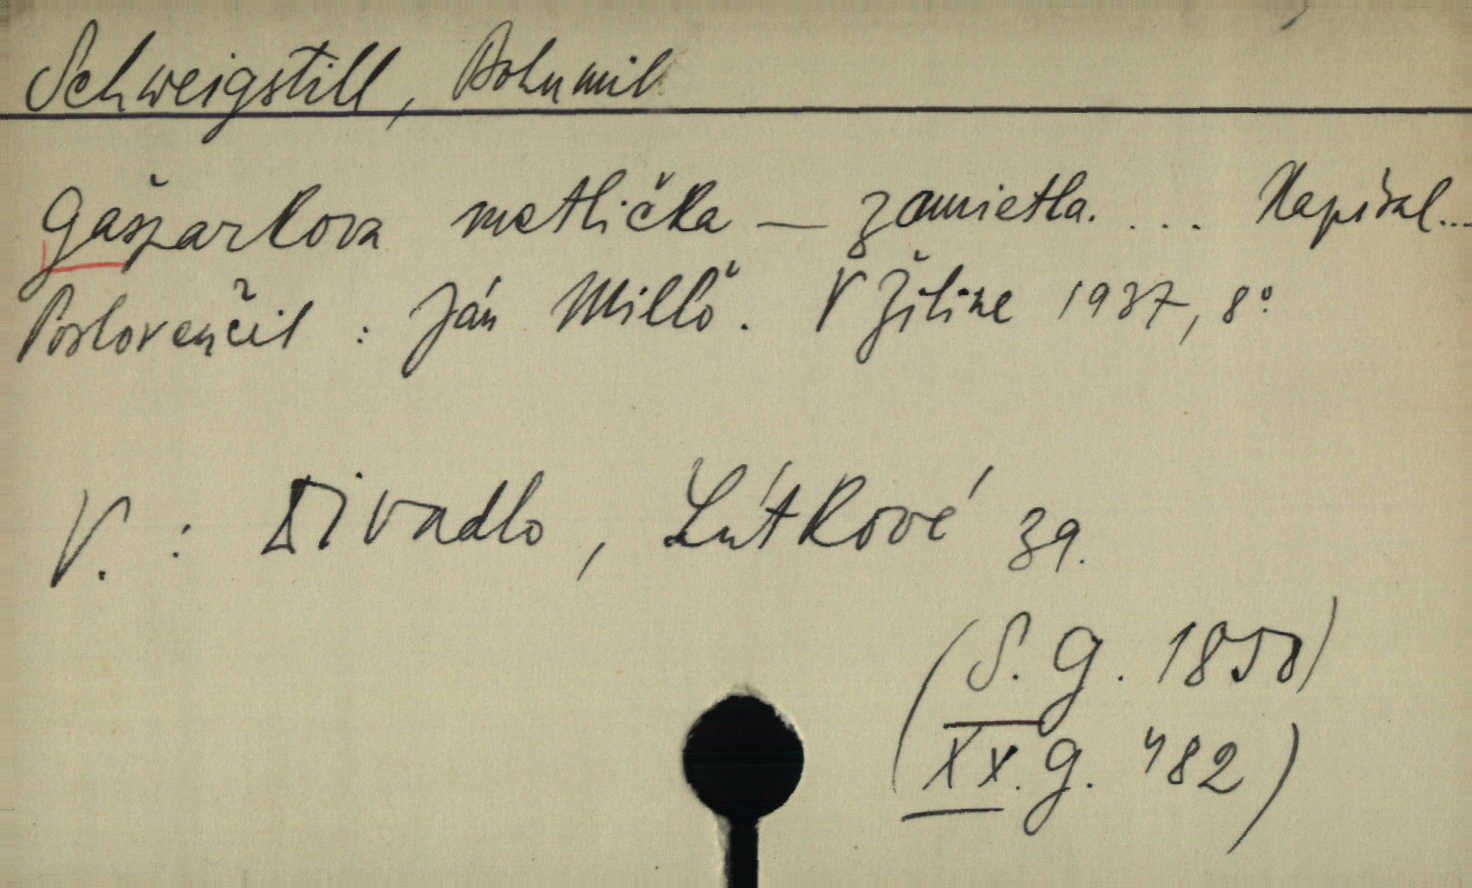 Schweigstill, Bohumil
Gašparkova metlička — zamietla. ... Napísal...
Poslovenčil : Ján Milló. V Žiline 1937, 8°.
V. : Divadlo, Lútkové 39.
(S. G. 1850)
XX. G. 482)